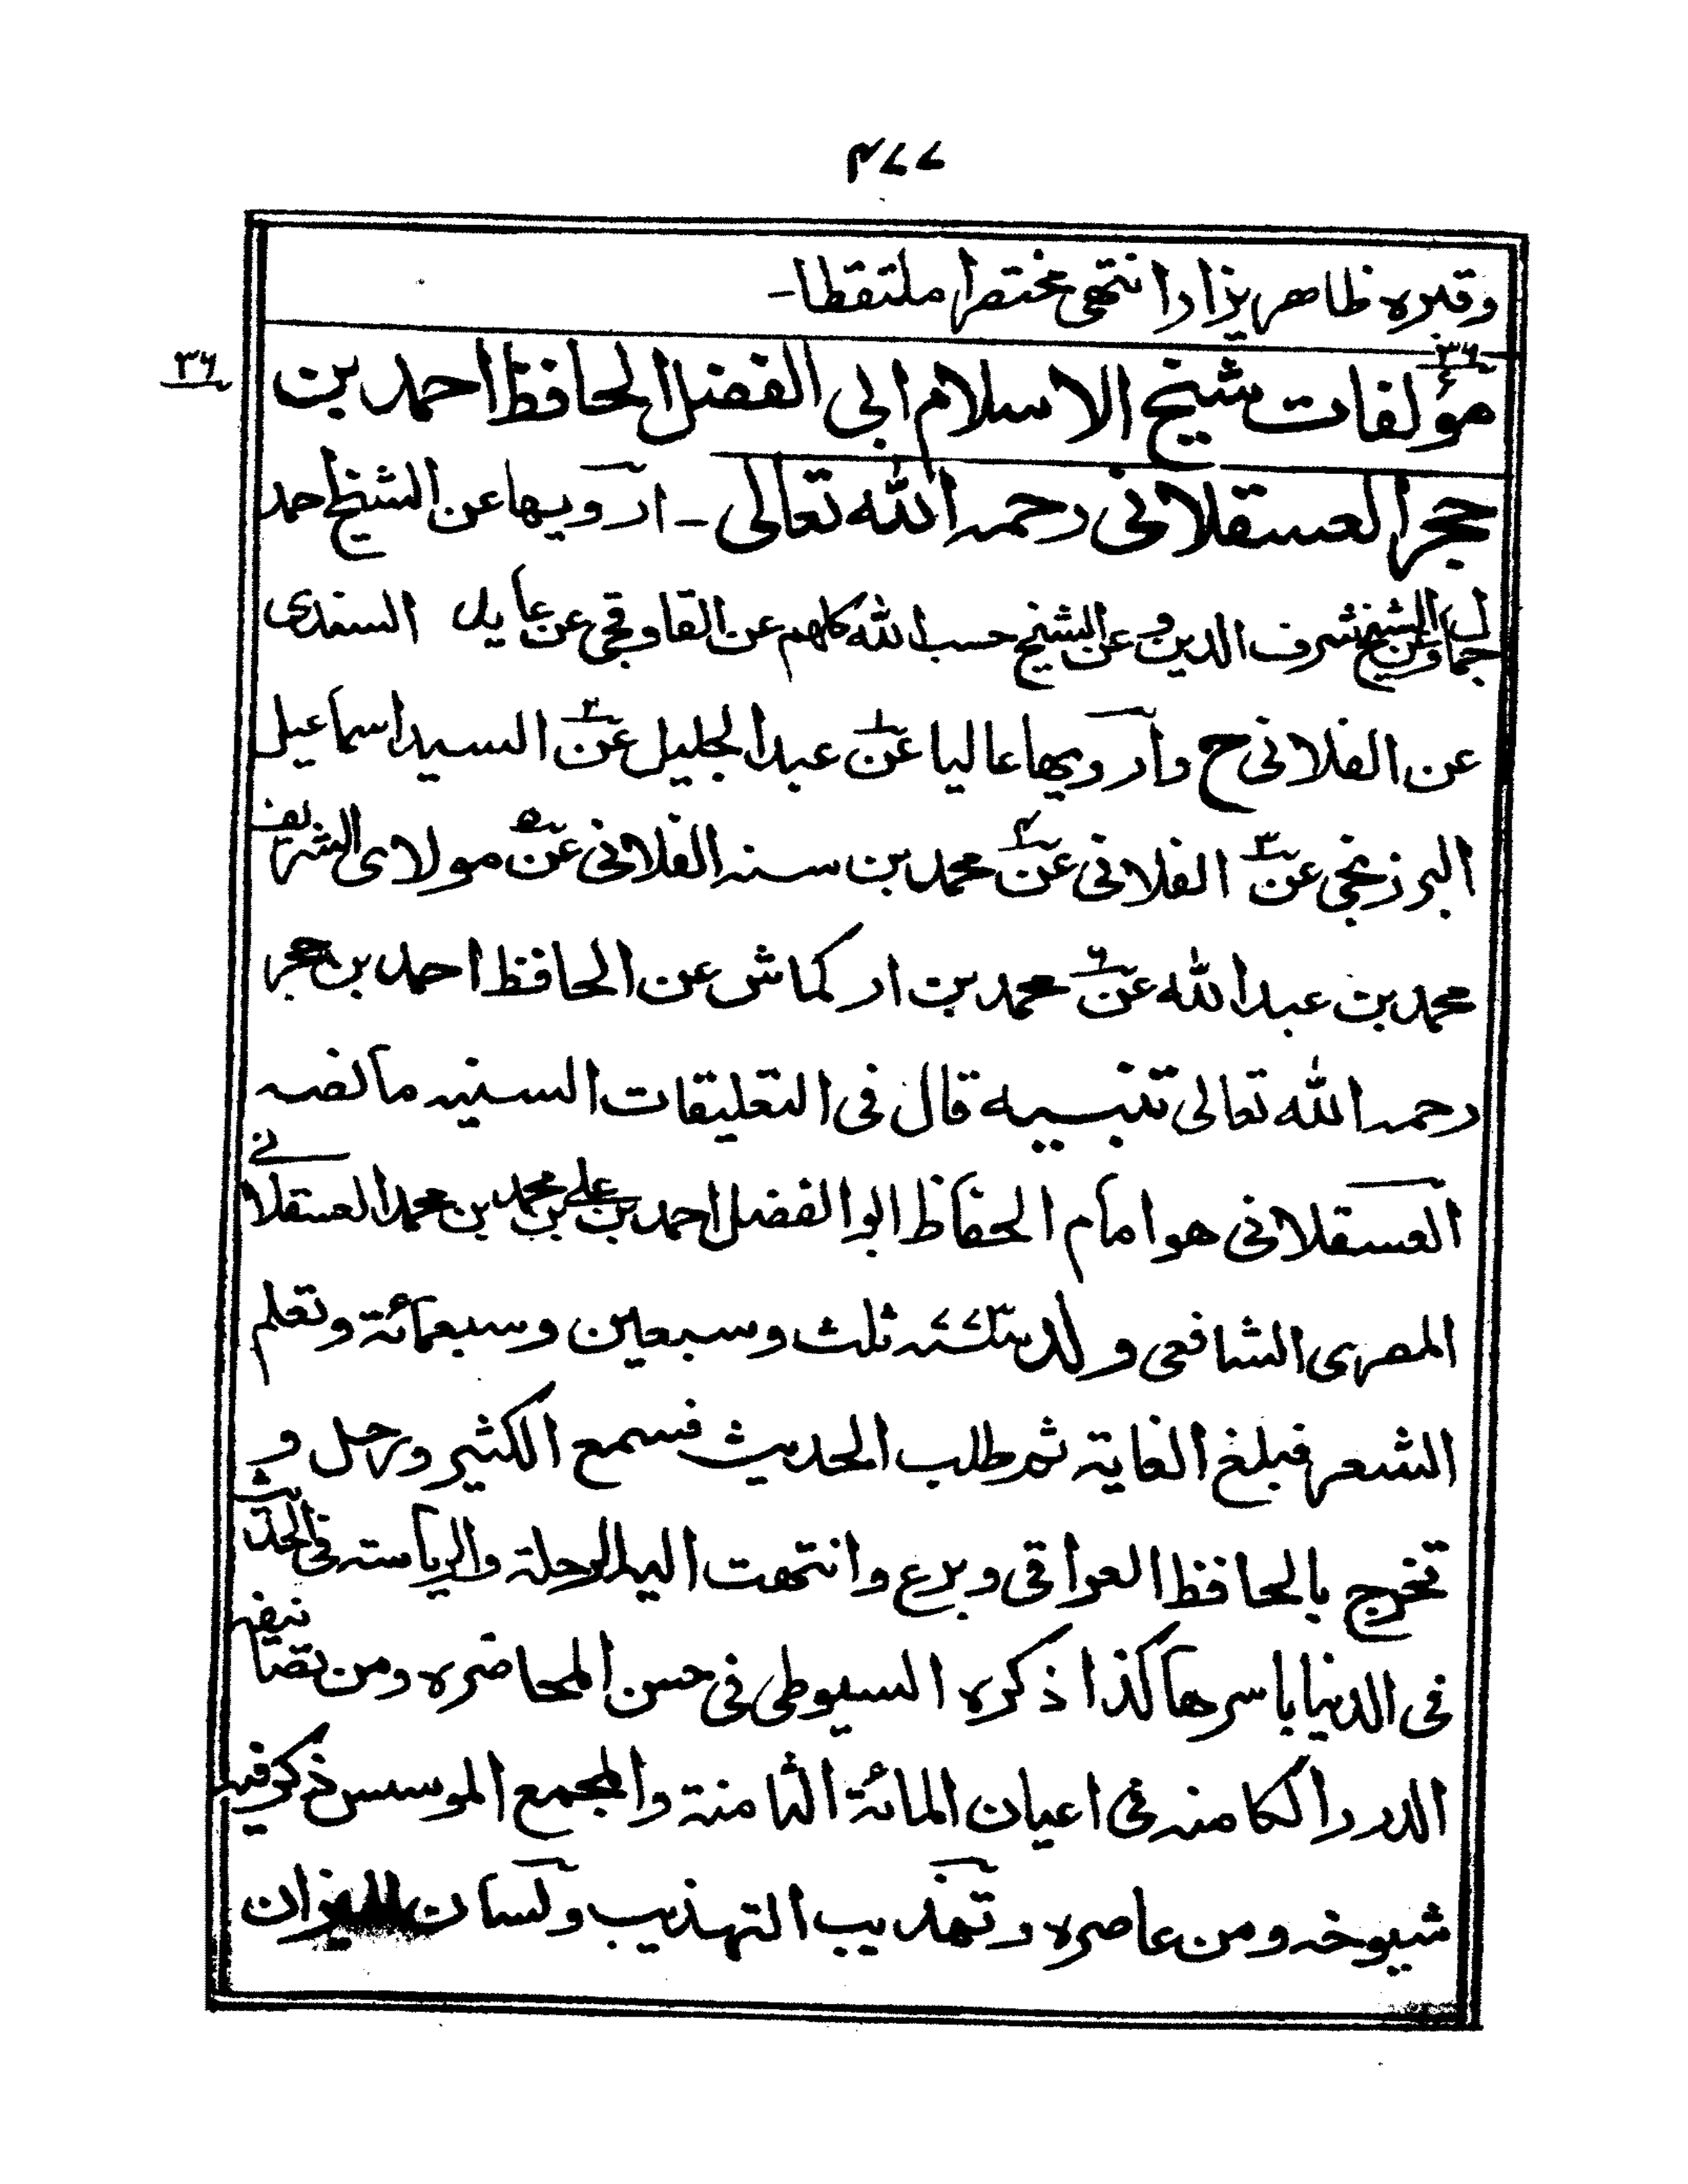 ٤٧٧
وقبره ظاهر يزار انتهى مختصرا ملتقطا-
٣٦
مؤلفات شيخ الاسلام ابى الفضل الحافظ احمد بن
٣٦
حجر العسقلانى رحمه الله تعالى - ارويها عن الشيخ احمد
جمال وعن الشيخ شرف الدين وعن الشيخ حسب الله كلهم عن القاوقجى عن عابد السندى
عن الفلانى ح وارويها عاليا عن١ عبد الجليل عن٢ السيد اسماعيل
البرزنجى عن٣ الفلانى عن٤ محمد بن سنه الفلانى عن٥ مولاى الشريف
محمد بن عبد الله عن٦ محمد بن اركماش عن الحافظ احمد بن حجر
رحمه الله تعالى تنبسيه قال فى التعليقات السنيه ما نصه
العسقلانى هو امام الحفاظ ابو الفضل احمد بن على بن محمد بن محمد العسقلانى
المصرى الشافعى ولد سنة ٧٧٣ ثلث وسبعين وسبعمائة وتعلم
الشعر فبلغ الغاية ثم طلب الحديث فسمع الكثير ورحل و
تخرج بالحافظ العراقى وبرع وانتهت اليه الرحلة والرياسته فى الحديث
فى الدنيا باسرها كذا ذكره السيوطى فى حسن المحاضره ومن تصانيفه
الدرر الكامنه فى اعيان المائة الثامنة والمجمع الموسس ذكر فيه
شيوخه ومن عاصره وتهذيب التهذيب ولسان الميزان